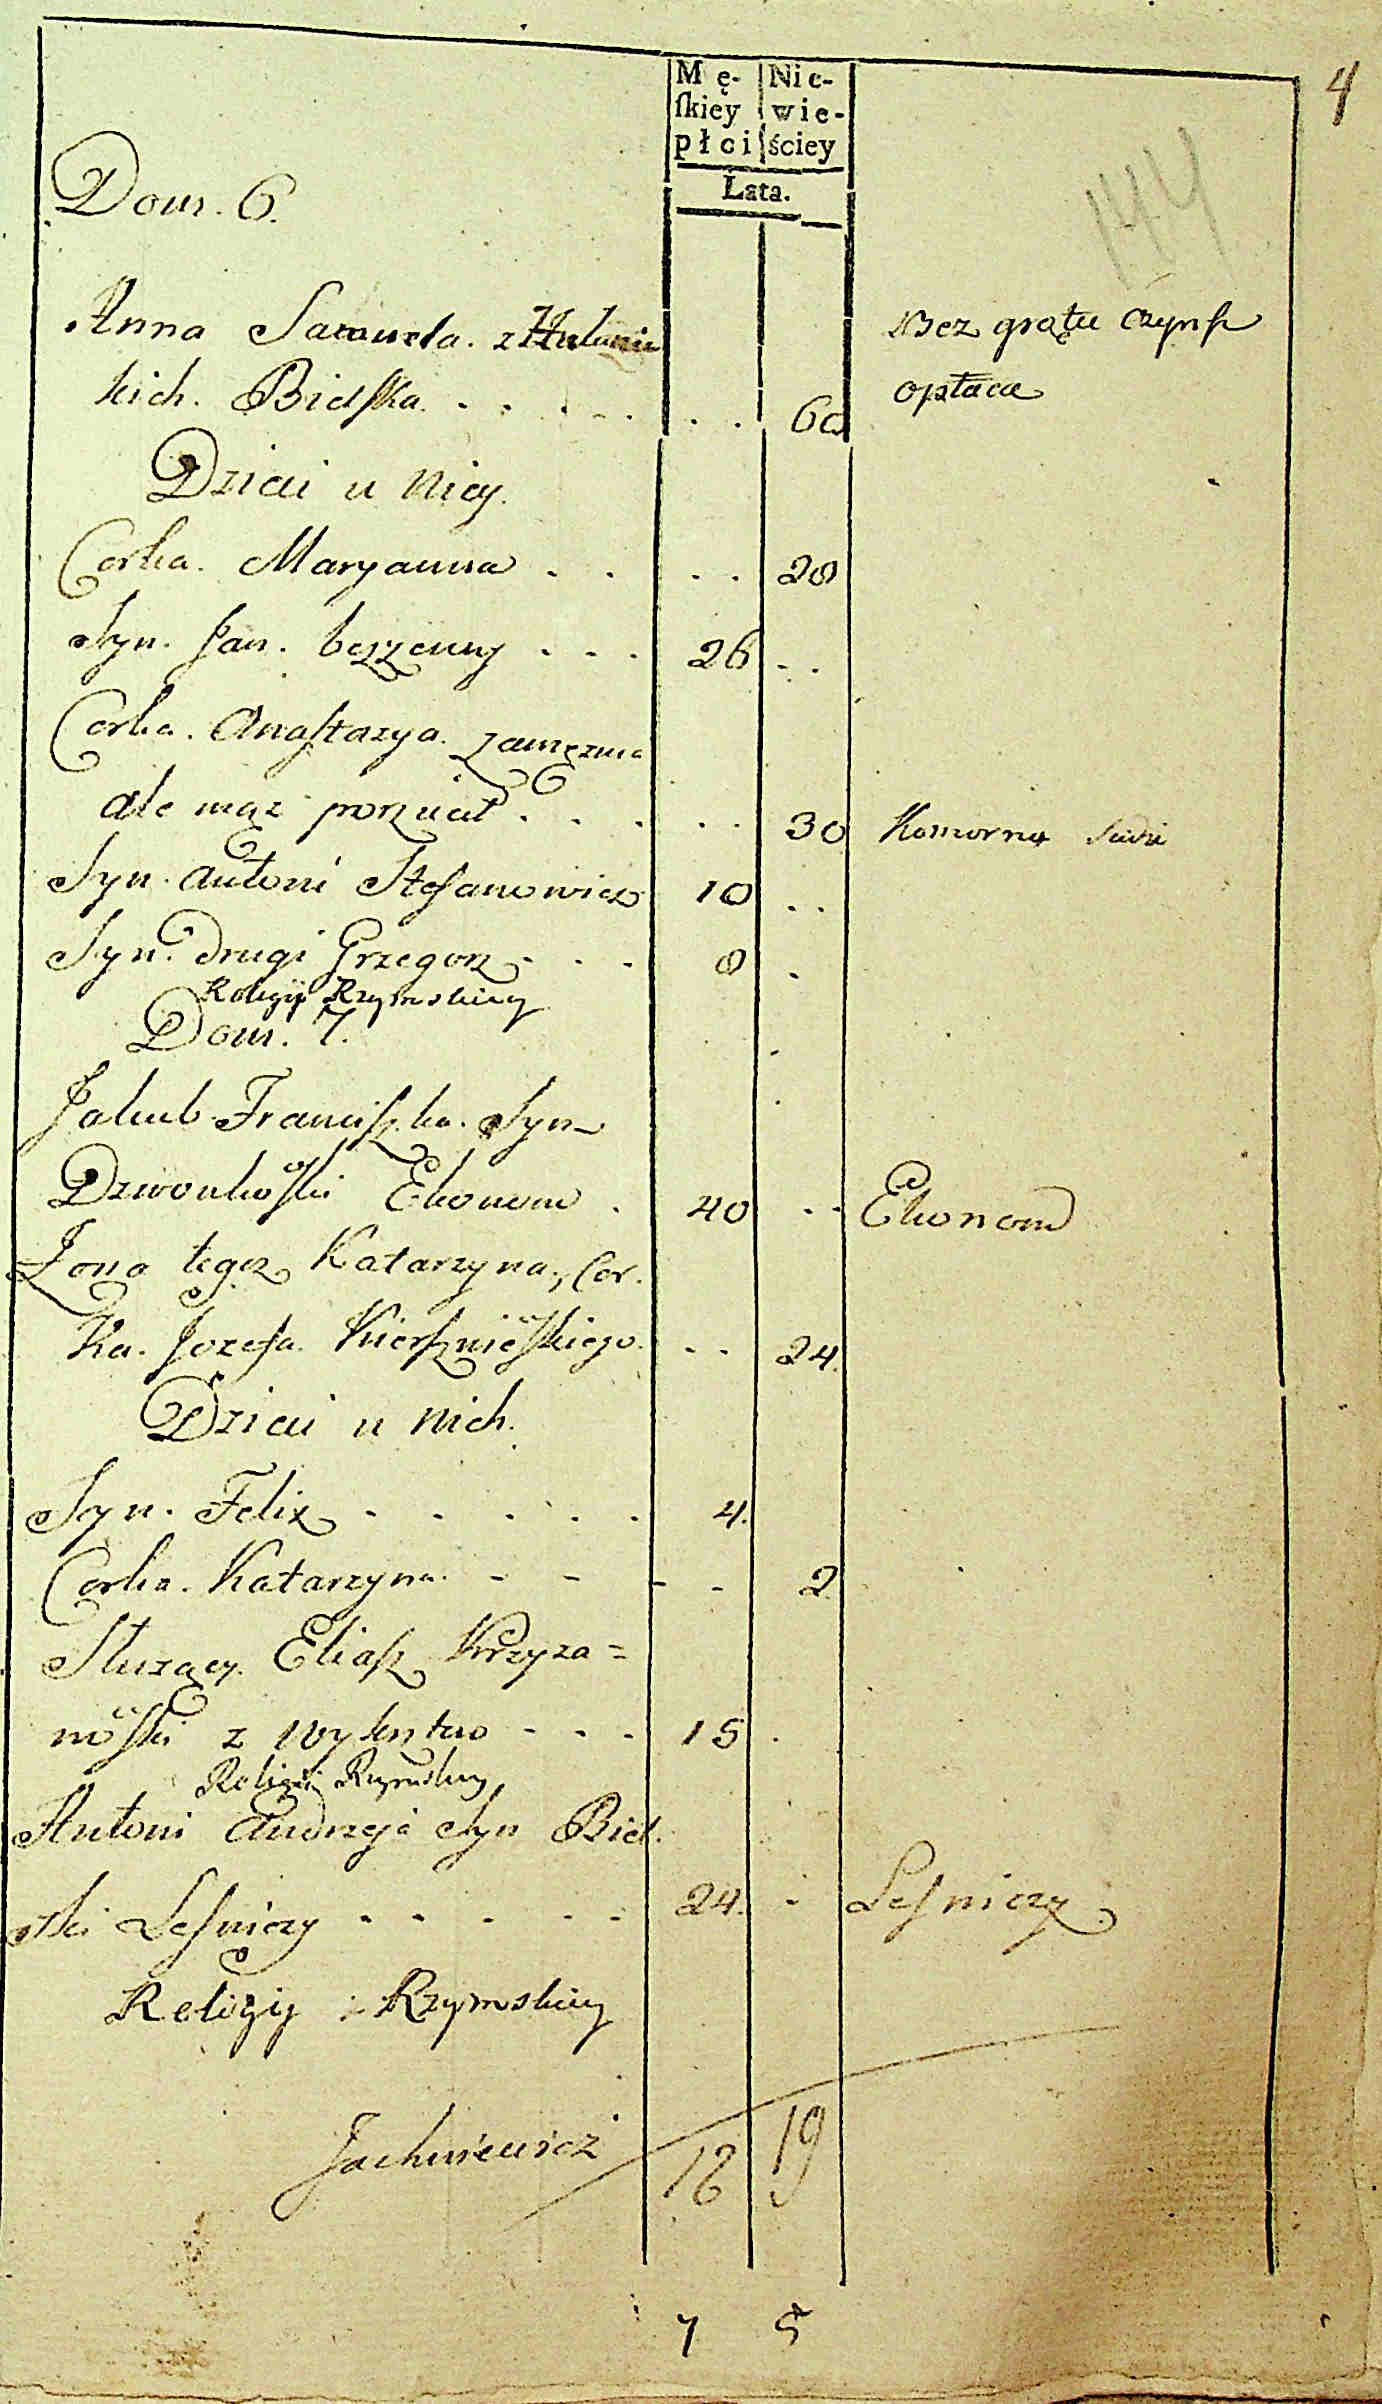 4
Mę- Nie-
ſkiey wie-
płci ściey
Lata.
144
Dom. 6.
Anna Samuela. z Hulanic
kich. Bielſka. . . . . . . 60 Bez grątu Czynſz
opłaca
Dzieci u Niey.
Corka. Maryanna . . . . 20
Syn. Jan. bezzenny . . . 26 . .
Corka. Anaſtazya. zamęzna
ale mąz porzucił . . . . . 30 Komorną Siedzi
Syn. Antoni Stefanowicz 10 . .
Syn. drugi Grzegorz . . . 8 .
Religiy Rzymskiey
Dom. 7.
Jakub Franciſzka. Syn
Dzwonkoſki Ekonom . 40 . . Ekonom
Zona tegoz Katarzyna, Cor.
Ka. Jozefa. Kierſznieſkiego. . . 24.
Dzieci u Nich.
Syn. Felix . . . . . 4.
Corka. Katarzyna. - - - - 2
Sluzący. Eliaſz Krzyza =
noſki z - - - 15 .
Religiy Rzymskiey
Antoni Andrzeja Syn Biel.
ski Leſniczy - - - - - 24. - Leſniczy
Religiy Rzymskiey
Jachniewicz 18 19
7 5